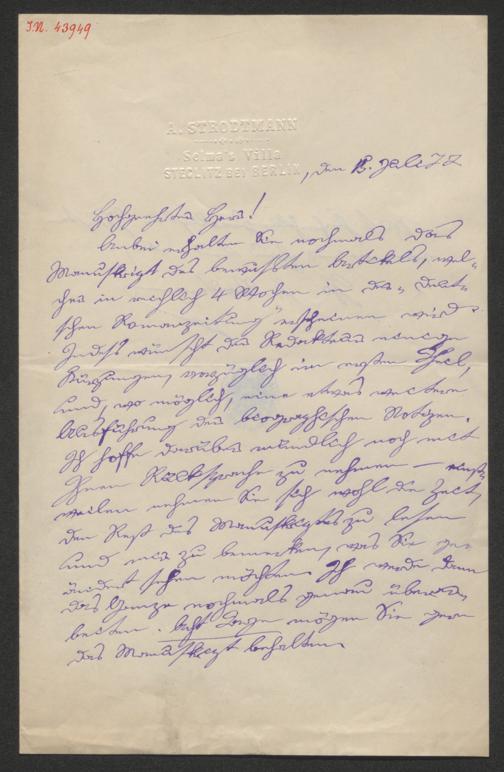 I.N. 43949
A. STRODTMANN
Selma's Villa
STEGLITZ BEI BERLIN
, den 13. Juli 72
Hochgeehrter Herr!
Anbei erhalten Sie nochmals das
Manuskript des bewußten Artikels, wel-
cher in reichlich 4 Wochen in der „Deut-
schen Romanzeitung" erscheinen wird.
Indeß wünscht der Redakteur einige
Kürzungen, vorzüglich im ersten Theil,
und, wo möglich, eine etwas weitere
Ausführung der biographischen Notizen.
Ich hoffe darüber mündlich noch mit
Ihnen Rücksprache zu nehmen — einst-
weilen nehmen Sie sich wohl die Zeit,
den Rest des Manuskriptes zu lesen
und mir zu bemerken, was Sie ge-
ändert sehen möchten. Ich werde dann
das Ganze nochmals genau überar-
beiten. Acht Tage mögen Sie gern
das Manuskript behalten.